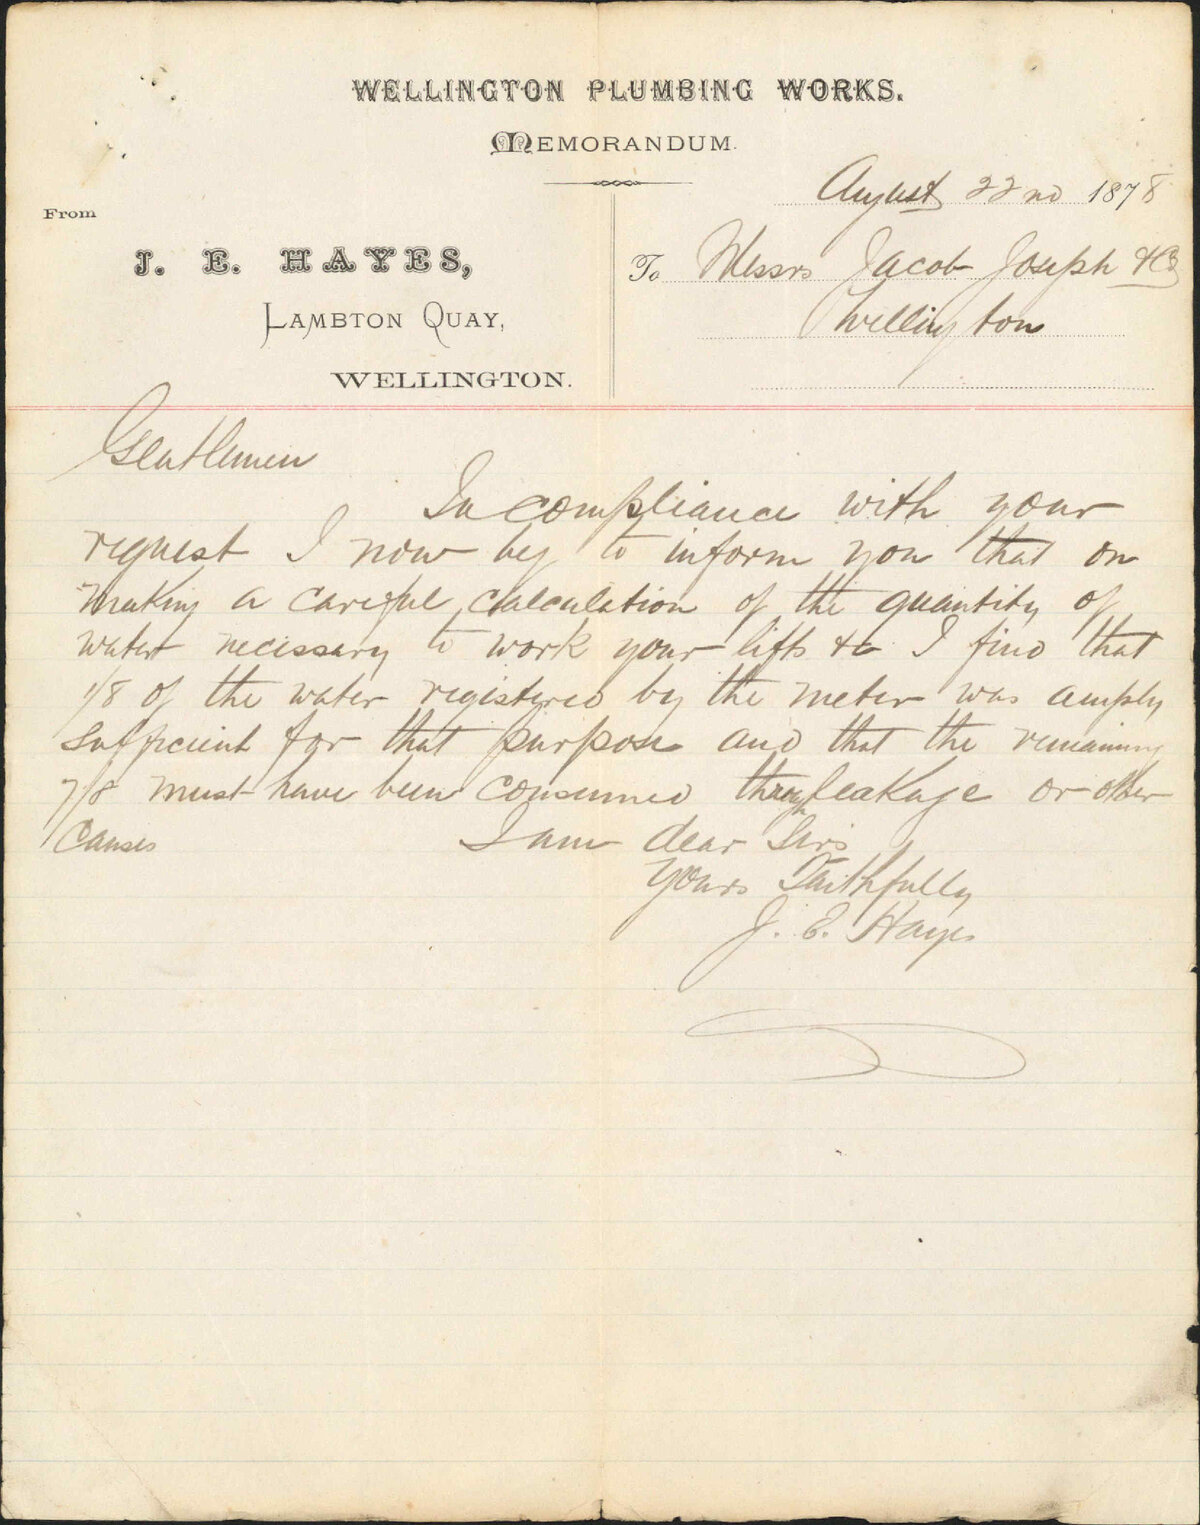 WELLINGTON PLUMBING WORKS.
MEMORANDUM.
August 22nd 1878
From
J. E. HAYES,
LAMBTON QUAY,
WELLINGTON.
To Messrs Jacob Joseph & Co
Wellington
Gentlemen
In compliance with your
request I now beg to inform you that on
making a careful calculation of the quantity of
water necessary to work your lifts &c I find that
1/8 of the water registered by the meter was amply
sufficient for that purpose and that the remaining
7/8 must have been consumed through leakage or other
causes
I am dear Sirs
Yours Faithfully
J. E. Hayes